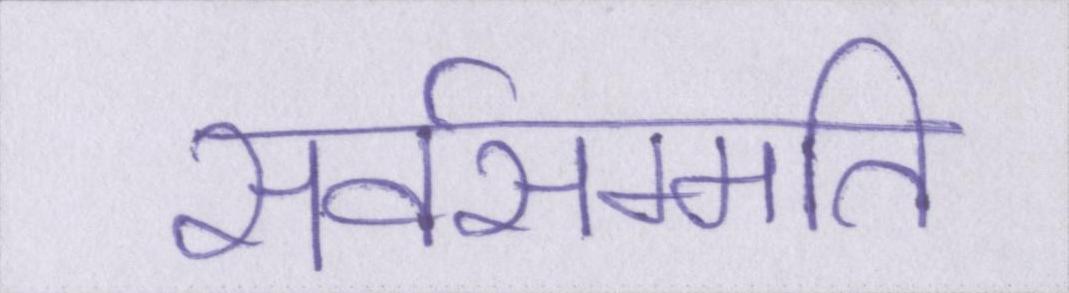 सर्वसम्मति